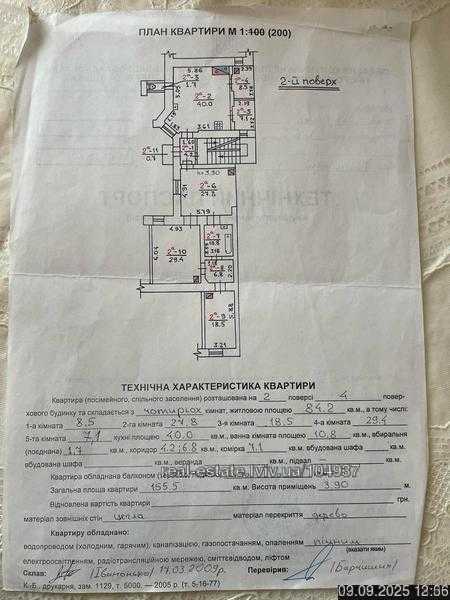 ПЛАН КВАРТИРИ М 1:100 (200)
2-й поверх
5.86
2ª-3
1.7
2.39
2ª-4
8.5
5.05
2ª-2
40.0
2.19
2ª-5
7.1
3.61
2ª-11
0.7
2ª-1
4.2
h=3.90
2ª-6
27.8
4.91
5.79
4.93
6.04
2ª-10
29.4
2ª-7
10.8
3.18
2ª-8
6.8
2.20
2ª-9
18.5
5.88
3.21
ТЕХНІЧНА ХАРАКТЕРИСТИКА КВАРТИРИ
Квартира (посімейного, спільного заселення) розташована на 2 поверсі 4 повер-
хового будинку та складається з чотирьох кімнат, житловою площею 84.2 кв.м., в тому числі:
1-а кімната 8,5 2-га кімната 27.8 3-я кімната 18.5 4-а кімната 29.4
5-та кімната 7,1 кухні площею 40.0 кв.м., ванна кімната 10.8 кв.м., вбиральня
(поєднана) 1.7 кв.м., коридор 4.2; 6.8 кв.м., комірка 7.1 кв.м., вбудована шафа кв.м.
вбудована шафа кв.м., веранда
Квартира обладнана балконом
real-estate.lviv.ua/104937
Загальна площа квартири 155.5 кв.м. Висота приміщень 3.90 м.
Відновлена вартість квартири грн.
матеріал зовнішніх стін цегла матеріал перекриття дерево
Квартиру обладнано:
водопроводом (холодним, гарячим), каналізацією, газопостачанням, опаленням пічним
(вказати яким)
електроосвітленням, радіотрансляційною мережею, сміттєвідводом, ліфтом
Склав: 17.03.2009р. Перевірив:
К.-Б., друкарня, зам. 1129, т. 5000. — 2005 р. (т. 5-16-77)
09.09.2025 12:36